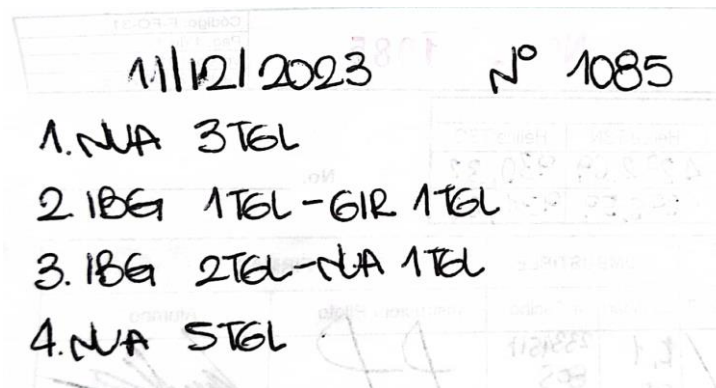 11/12/2023 Nº 1085
1. NVA 3TGL
2. IBG 1TGL - GIR 1TGL
3. IBG 2TGL - NVA 1TGL
4. NVA 5TGL